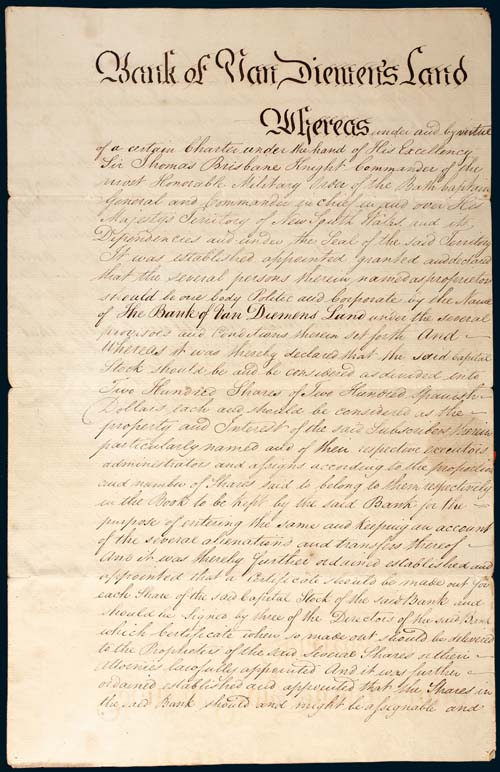 Bank of Van Diemen's Land
Whereas under and by virtue
of a certain Charter under the hand of His Excellency
Sir Thomas Brisbane Knight Commander of the
most Honorable Military Order of the Bath Captain
General and Commander in Chief in and over His
Majesty's Territory of New South Wales and its
Dependencies and under the Seal of the said Territory
It was established appointed granted and declared
that the several persons therein named as proprietors
should be one body Politic and Corporate by the Name
of The Bank of Van Diemens Land under the several
provisoes and Conditions therein set forth And
Whereas it was thereby declared that the said Capital
Stock should be and be considered as divided into
Two Hundred Shares of Two Hundred Spanish
Dollars each and should be considered as the
property and Interest of the said Subscribers therein
particularly named and of their respective executors
administrators and assigns according to the proportion
and number of Shares said to belong to them respectively
in the Book to be kept by the said Bank for the
purpose of entering the same and keeping an account
of the several alienations and transfers thereof
And it was thereby further ordained established and
appointed that a Certificate should be made out for
each Share of the said Capital Stock of the said Bank and
should be signed by three of the Directors of the said Bank
which Certificate when so made out should be delivered
to the Proprietors of the said Several Shares or their
Attornies lawfully appointed And it was further
ordained established and appointed that the Shares in
the said Bank should and might be assignable and